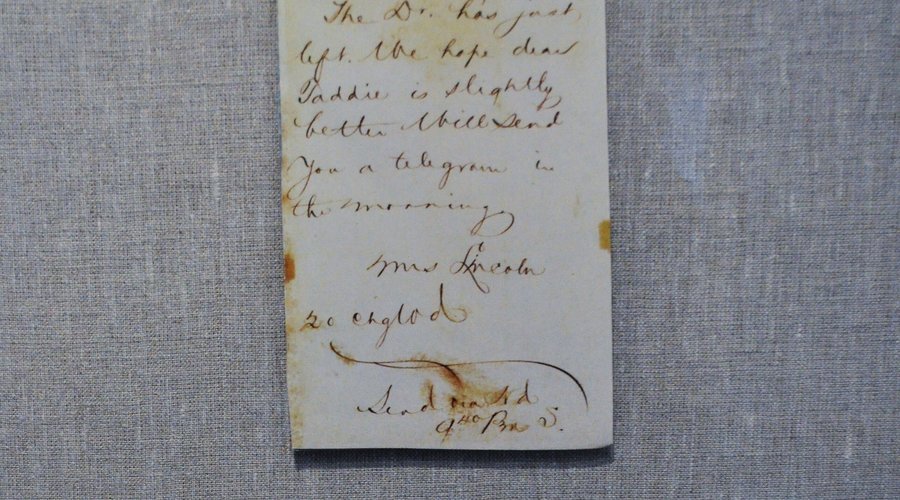 The Dr. has just
left. We hope dear
Taddie is slightly
better Will send
You a telegram in
the morning
Mrs Lincoln
20
Send
9 40 Pm